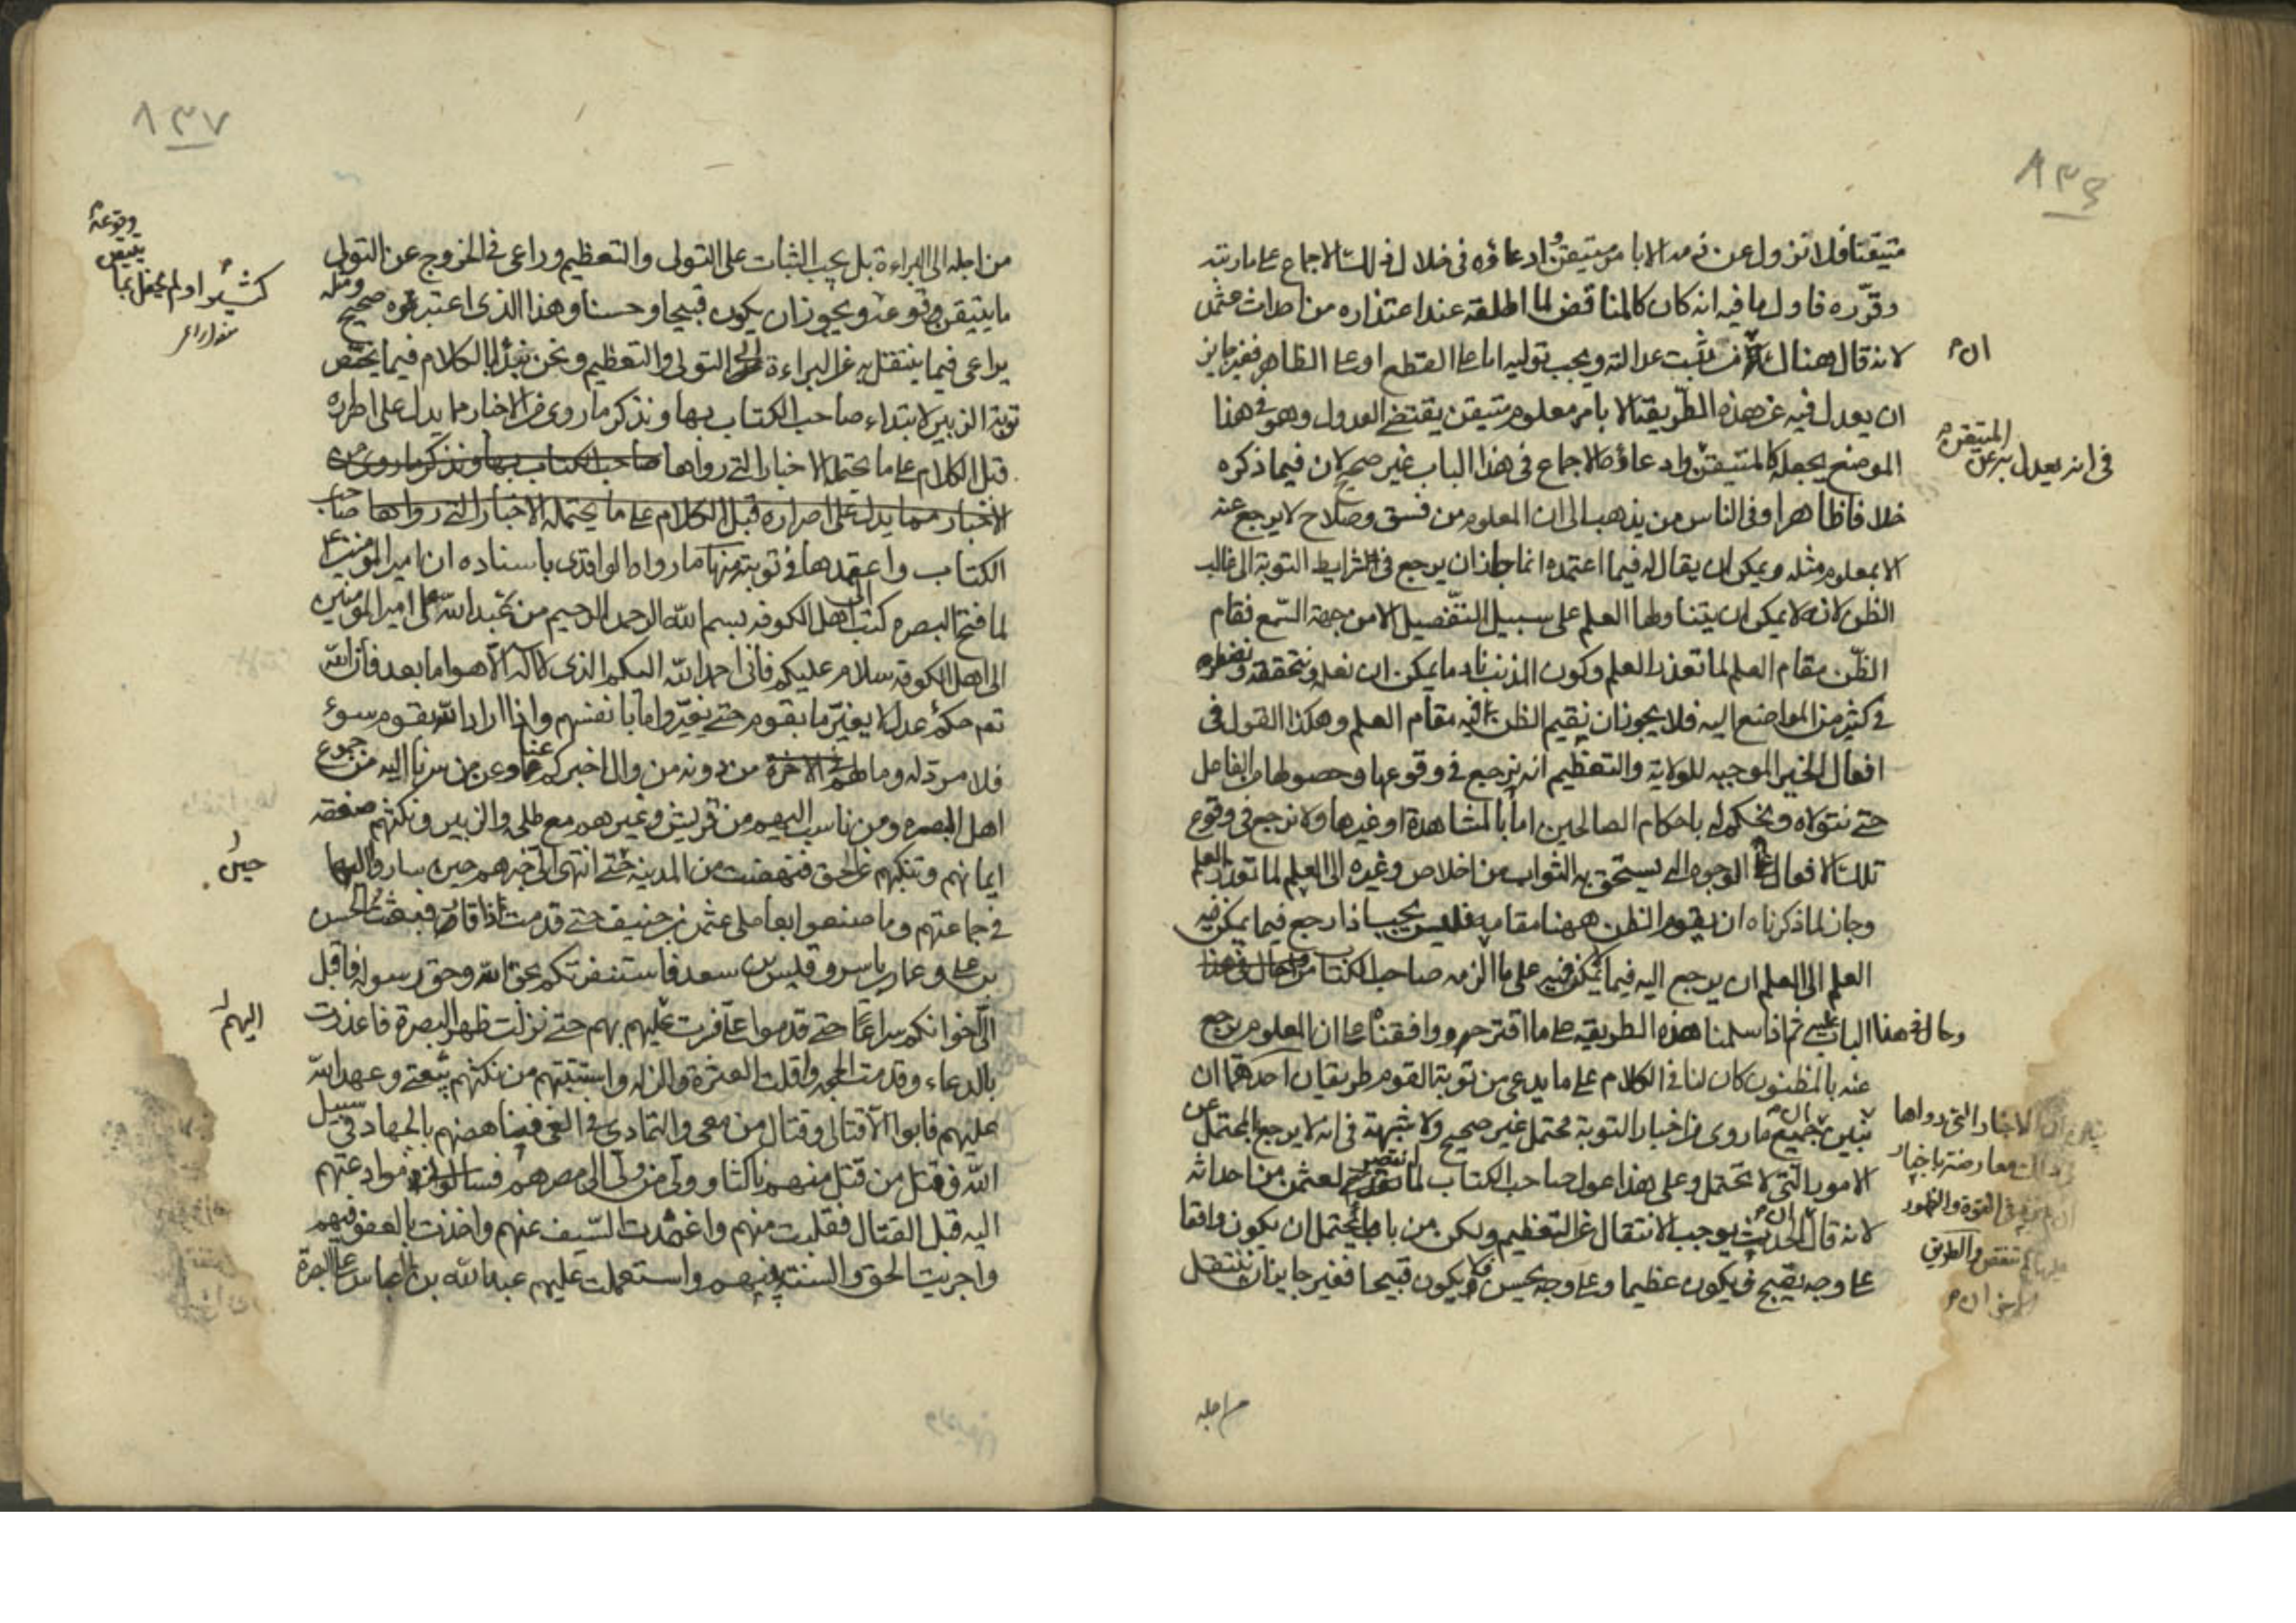 ٨٣٦
متيقنا فلا نزول عن ذمه الا بامر متيقن وادعاؤه فى خلال ذلك الاجماع على ما رتبه
وقرره فاول ما فيه انه كان كالمناقض لما اطلقه عند اعتذاره من احداث عثمن
لانه قال هناك ان من تثبت عدالته ويجب توليه اما على القطع او على الظاهر فغير جايز
ان م
ان يعدل فيه عن هذه الطريقة الا بامر معلوم متيقن يقتضى العدول وهو فى هذا
الموضع يجعله كالمتيقن وادعاؤه الاجماع فى هذا الباب غير صحيح لان فيما ذكره
فى انه يعدل به عن المتيقن م
خلافا ظاهرا وفى الناس من يذهب الى ان المعلوم من فسق وصلاح لا يرجع عنه
الا بمعلوم مثله ويمكن ان يقال له فيما اعتمده انما جاز ان يرجع فى شرايط التوبة الى غالب
الظن لانه لا يمكن ان يتناولها العلم على سبيل التفصيل الا من جهة السمع فقام
الظن مقام العلم لما تعذر العلم وكون المذنب نادما يمكن ان نعلمه ونتحققه ونضطر
فى كثير من المواضع اليه فلا يجوز ان نقيم الظن فيه مقام العلم وهكذا القول فى
افعال الخير الموجبه للولاية والتعظيم انه نرجع فى وقوعها وحصولها من الفاعل
حتى نتولاه ونحكم له باحكام الصالحين اما بالمشاهدة او غيرها ولا نرجع فى وقوع
تلك الافعال على الوجوه التى يستحق بها الثواب من اخلاص وغيره الى العلم لما تعذر العلم
وجاز لما ذكرناه ان يقوم الظن ههنا مقامه فليس يجب اذا رجع فيما يمكن فيه
العلم الى العلم ان يرجع اليه فيما لا يمكن فيه على ما الزمه صاحب الكتاب
وحال فى هذا الباب عليه ثم اذا سلمنا هذه الطريقة على ما اقترحه ووافقناه على ان المعلوم يرجع
عنه بالمظنون كان لنا فى الكلام على ما يدعى من توبة القوم طريقان احدهما ان
نبين ان جميع ما روى من اخبار التوبة محتمل غير صحيح ولا شبهة فى انه لا يرجع بالمحتمل عن
الامور التى لا تحتمل وعلى هذا عول صاحب الكتاب لما انتصر لعثمن من احداثه
لانه قال ان الحدث يوجب الانتقال عن التعظيم ولكن من باب ما يحتمل ان يكون واقعا
على وجه يقبح فيكون عظيما وعلى وجه يحسن فلا يكون قبيحا فغير جايز ان ننتقل
الاخبار التى رواها
معارضة باخبار
فى القوة والظهور
والطريق
الاخر ان م
من اجله
٨٣٧
من اجله الى البراءة بل يجب الثبات على التولى والتعظيم وراعى فى الخروج عن التولى
ما يتيقن وقوعه ويجوز ان يكون قبيحا وحسنا وهذا الذى اعتبره صحيح ومثله
وقوعه م
يراعى فيما ينتقل به عن البراءة الى التولى والتعظيم ونحن نبدأ بالكلام فيما يختص
توبة الزبير لابتداء صاحب الكتاب بها ونذكر ما روى من الاخبار مما يدل على اصراره
قبل الكلام على ما يحتمله الاخبار التى رواها صاحب الكتاب بها ونذكر ما روى من
الاخبار مما يدل على اصراره قبل الكلام على ما يحتمله الاخبار التى رواها صاحب
الكتاب واعتمدها فى توبته فمنها ما رواه الواقدى باسناده ان امير المؤمنين ع
لما فتح البصره كتب الى اهل الكوفه بسم الله الرحمن الرحيم من عبد الله على امير المومنين
الى اهل الكوفة سلام عليكم فانى احمد الله اليكم الذى لا اله الا هو اما بعد فان الله
تع حكم عدل لا يغير ما بقوم حتى يغيروا ما بانفسهم واذا اراد الله بقوم سوء
فلا مرد له وما لهم من دونه من وال اخبركم عنا وعن من سرنا اليه من جموع
اهل البصره ومن تاشب اليهم من قريش وغيرهم مع طلحه والزبير ونكثهم صفقة
ايمانهم وتنكبهم عن الحق فنهضت من المدينة حتى انتهى الى خبرهم حين ساروا اليها
حين
فى جماعتهم وما صنعوا بعاملى عثمن بن حنيف حتى قدمت ذا قار فبعثت الحسن
بن على وعمار بن ياسر وقيس بن سعد فاستنفرتكم بحق الله وحق رسوله فاقبل
الى اخوانكم سراعا حتى قدموا على فسرت بهم حتى نزلت ظهر البصرة فاعذرت
اليهم
بالدعاء وقدمت الحجه واقلت العثرة والزله واستتبتهم من نكثهم بيعتى وعهد الله
عليهم فابوا الا قتالى وقتال من معى والتمادى فى الغى فناهضتهم بالجهاد فى سبيل
الله فقتل من قتل منهم ناكثا وولى من ولى الى مصرهم فسالونى ما دعوتهم
اليه قبل القتال فقبلت منهم واغمدت السيف عنهم واخذت بالعفو فيهم
واجريت الحق والسنة بينهم واستعملت عليهم عبد الله بن العباس على البصرة